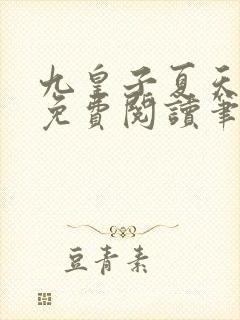 九皇子夏天
免費閱讀筆
豆青素